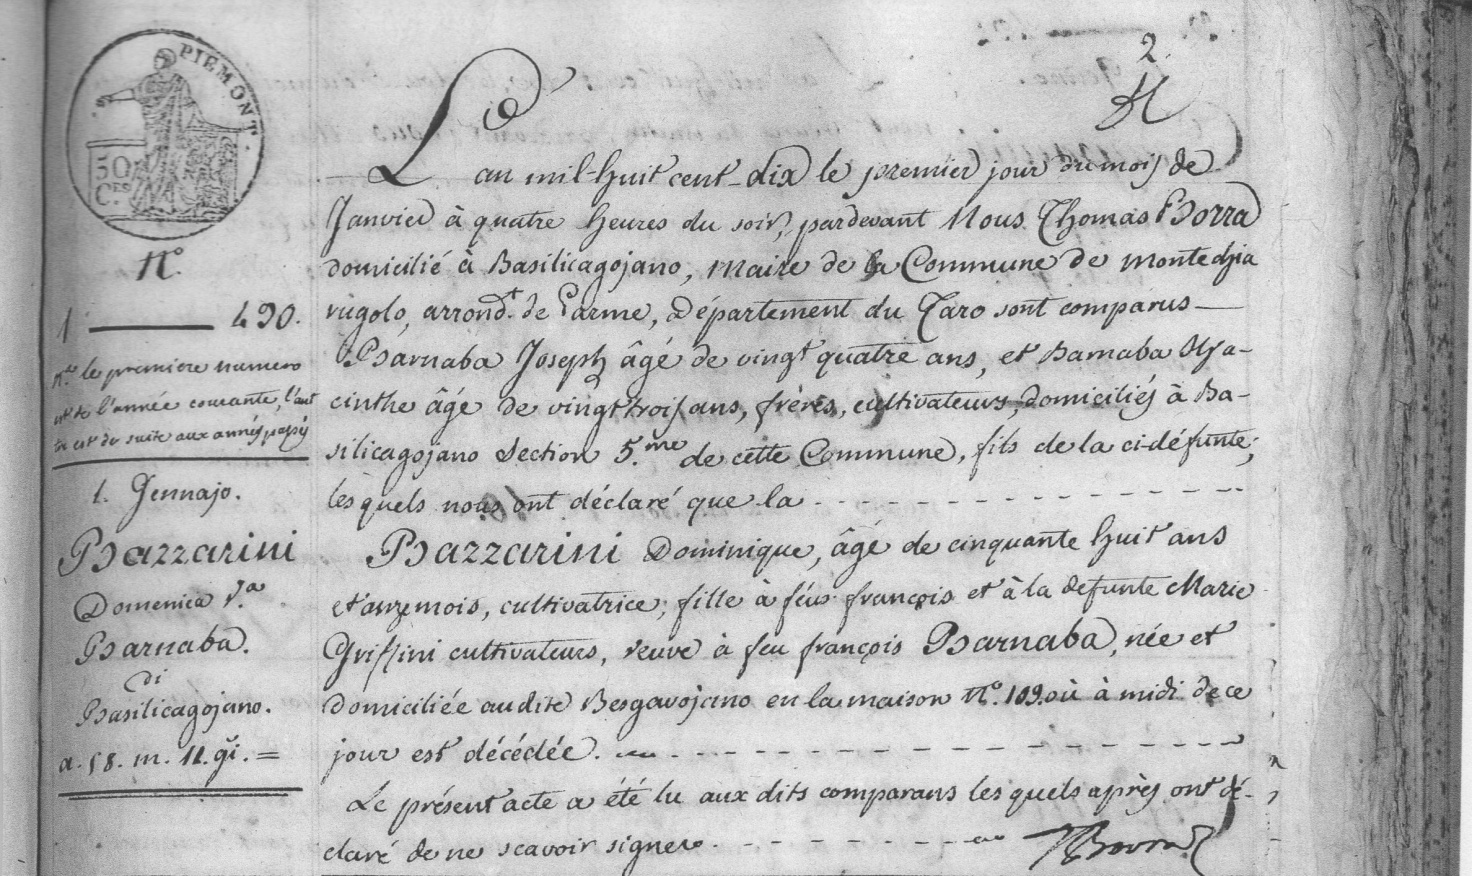 PIEMONT.
50
CES
C.
2.
N°.
1 — 490.
N.° le premiere numero
est de l'année courante, l'aut
tre est de suite aux annés passés
1. Gennajo.
Bazzarini
Domenica V.a
Barnaba.
di
Basilicagojano.
a. 58. m. 11. gi. =
L'an mil-huit cent-dix le premier jour du mois de
Janvier à quatre heures du soir, pardevant Nous Thomas Borra
domicilié à Basilicagojano, Maire de la Commune de montechia
rugolo, arrond.t de Parme, Département du Taro sont comparus —
Barnaba Joseph âgé de vingt quatre ans, et Barnaba Hya-
cinthe âgé de vingt trois ans, frères, cultivateurs, domiciliés à Ba-
silicagojano Section 5.me de cette Commune, fils de la ci défunte;
les quels nous ont déclaré que la - - - - - - - - - -
Bazzarini Dominique, âgé de cinquante huit ans
et onze mois, cultivatrice, fille à feus françois et à la defunte Marie
Griffini cultivateurs, veuve à feu françois Barnaba, née et
domiciliée au dite Besgavojano en la maison N.° 109. où à midi de ce
jour est décédée. - - - - - - - - - -
Le présent acte a été lu aux dits comparans les quels après ont dé-
claré de ne scavoir signer. - - - - - - Borra